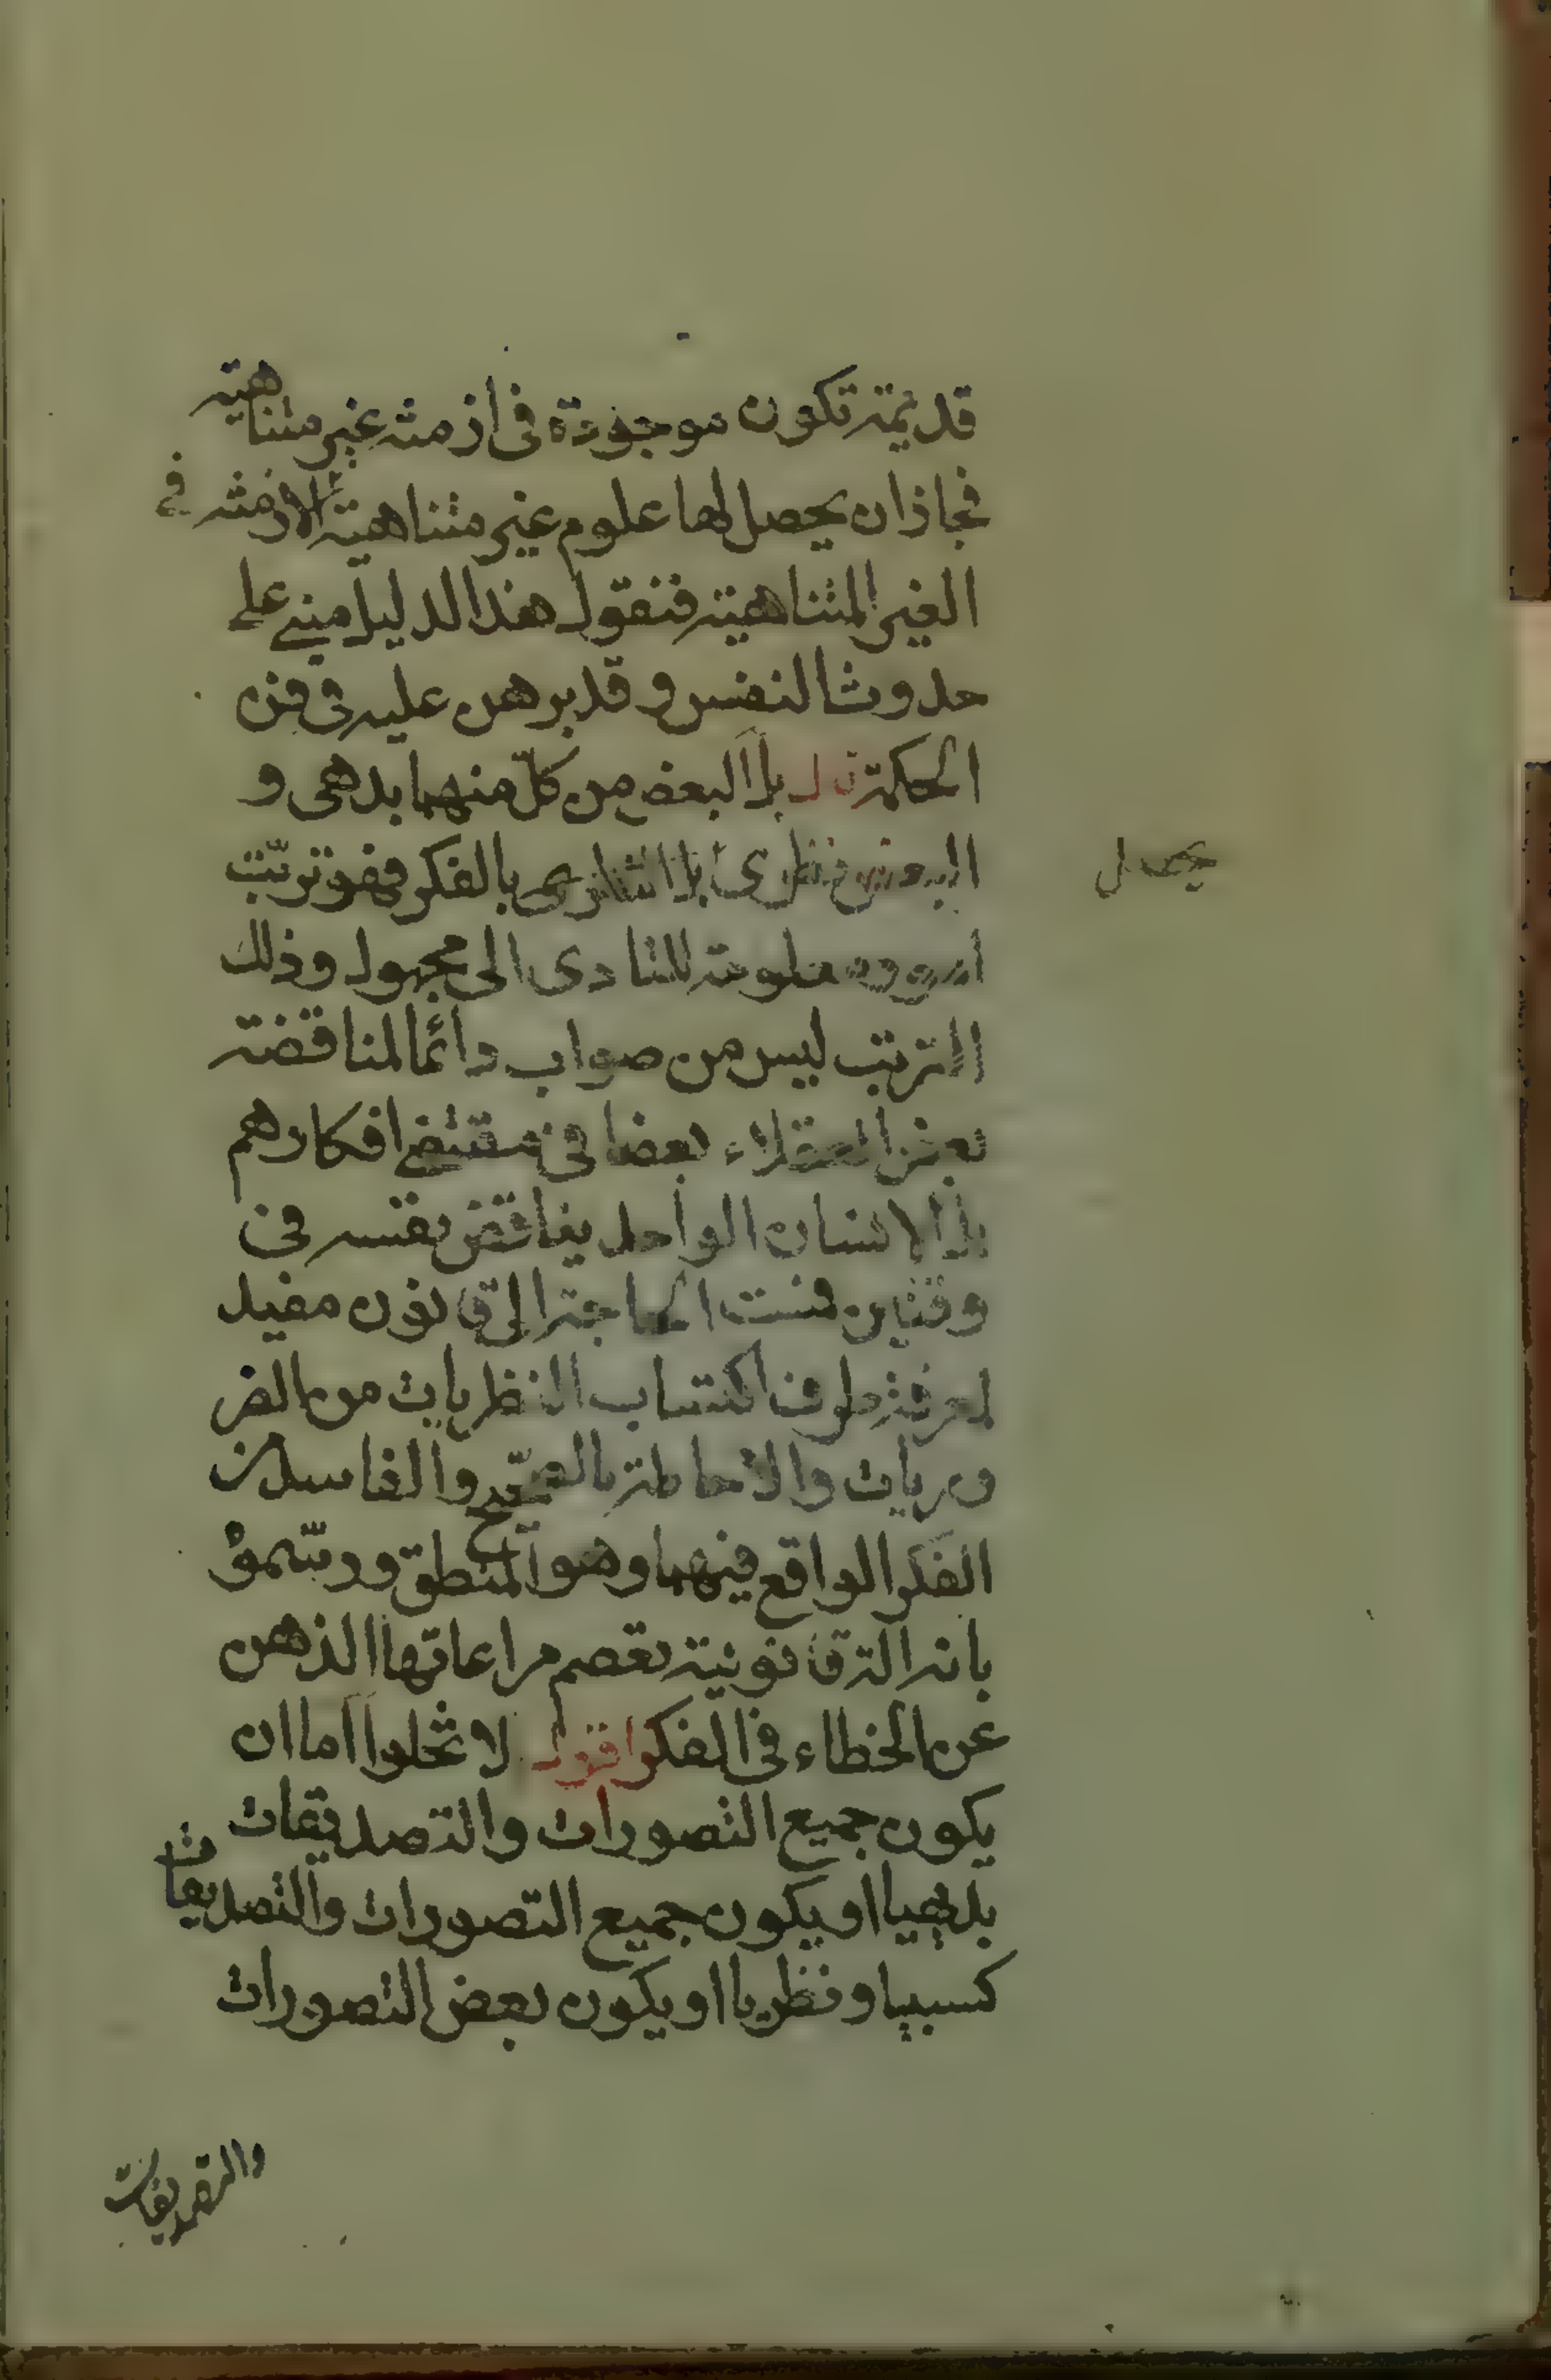 قديمة تكون موجودة فى ازمنة غير متناهية
فجاز ان يحصل لها علوم غير متناهية فى الازمنة
الغير المتناهية فنقول هذا الدليل مبنى على
حدوث النفس و قد برهن عليه فى فن
الحكمة قال بل البعض من كلّ منهما بدهى و
البعض نظرى بل النظرى بالفكر فهو ترتّب
يحصل
امور معلومة للتادى الى مجهول وذلك
الترتب ليس من صواب دائما لمناقضة
بعض العقلاء بعضا فى مقتضى افكارهم
بل الانسان الواحد يناقض نفسه فى
وقتين فمست الحاجة الى قانون مفيد
لمعرفة طرق اكتساب النظريات من الضر
وريات والاحاطة بالصحيح والفاسد من
الفكر الواقع فيهما وهو المنطق ورسّموْ
بانه الة قانونية تعصم مراعاتها الذهن
عن الخطاء فى الفكر اقول لا تخلوا اما ان
يكون جميع التصورات والتصديقات
بديهيا او يكون جميع التصورات والتصديقات
كسبيا و نظريا او يكون بعض التصورات
والتصديقات